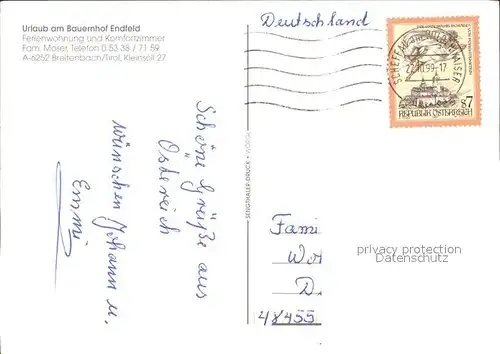 Urlaub am Bauernhof Endfeld
Ferienwohnung und Komfortzimmer
Fam. Moser, Telefon 0 53 38 / 71 59
A-6252 Breitenbach/Tirol, Kleinsöll 27
Deutschland
22.10.99-17
S7
REPUBLIK ÖSTERREICH
Schöne Grüße aus
Östereich
wünschen Johann u.
Emmi
SENGTHALER-DRUCK • WÖRGL
Fami
Wo
D
48455
privacy protection
Datenschutz